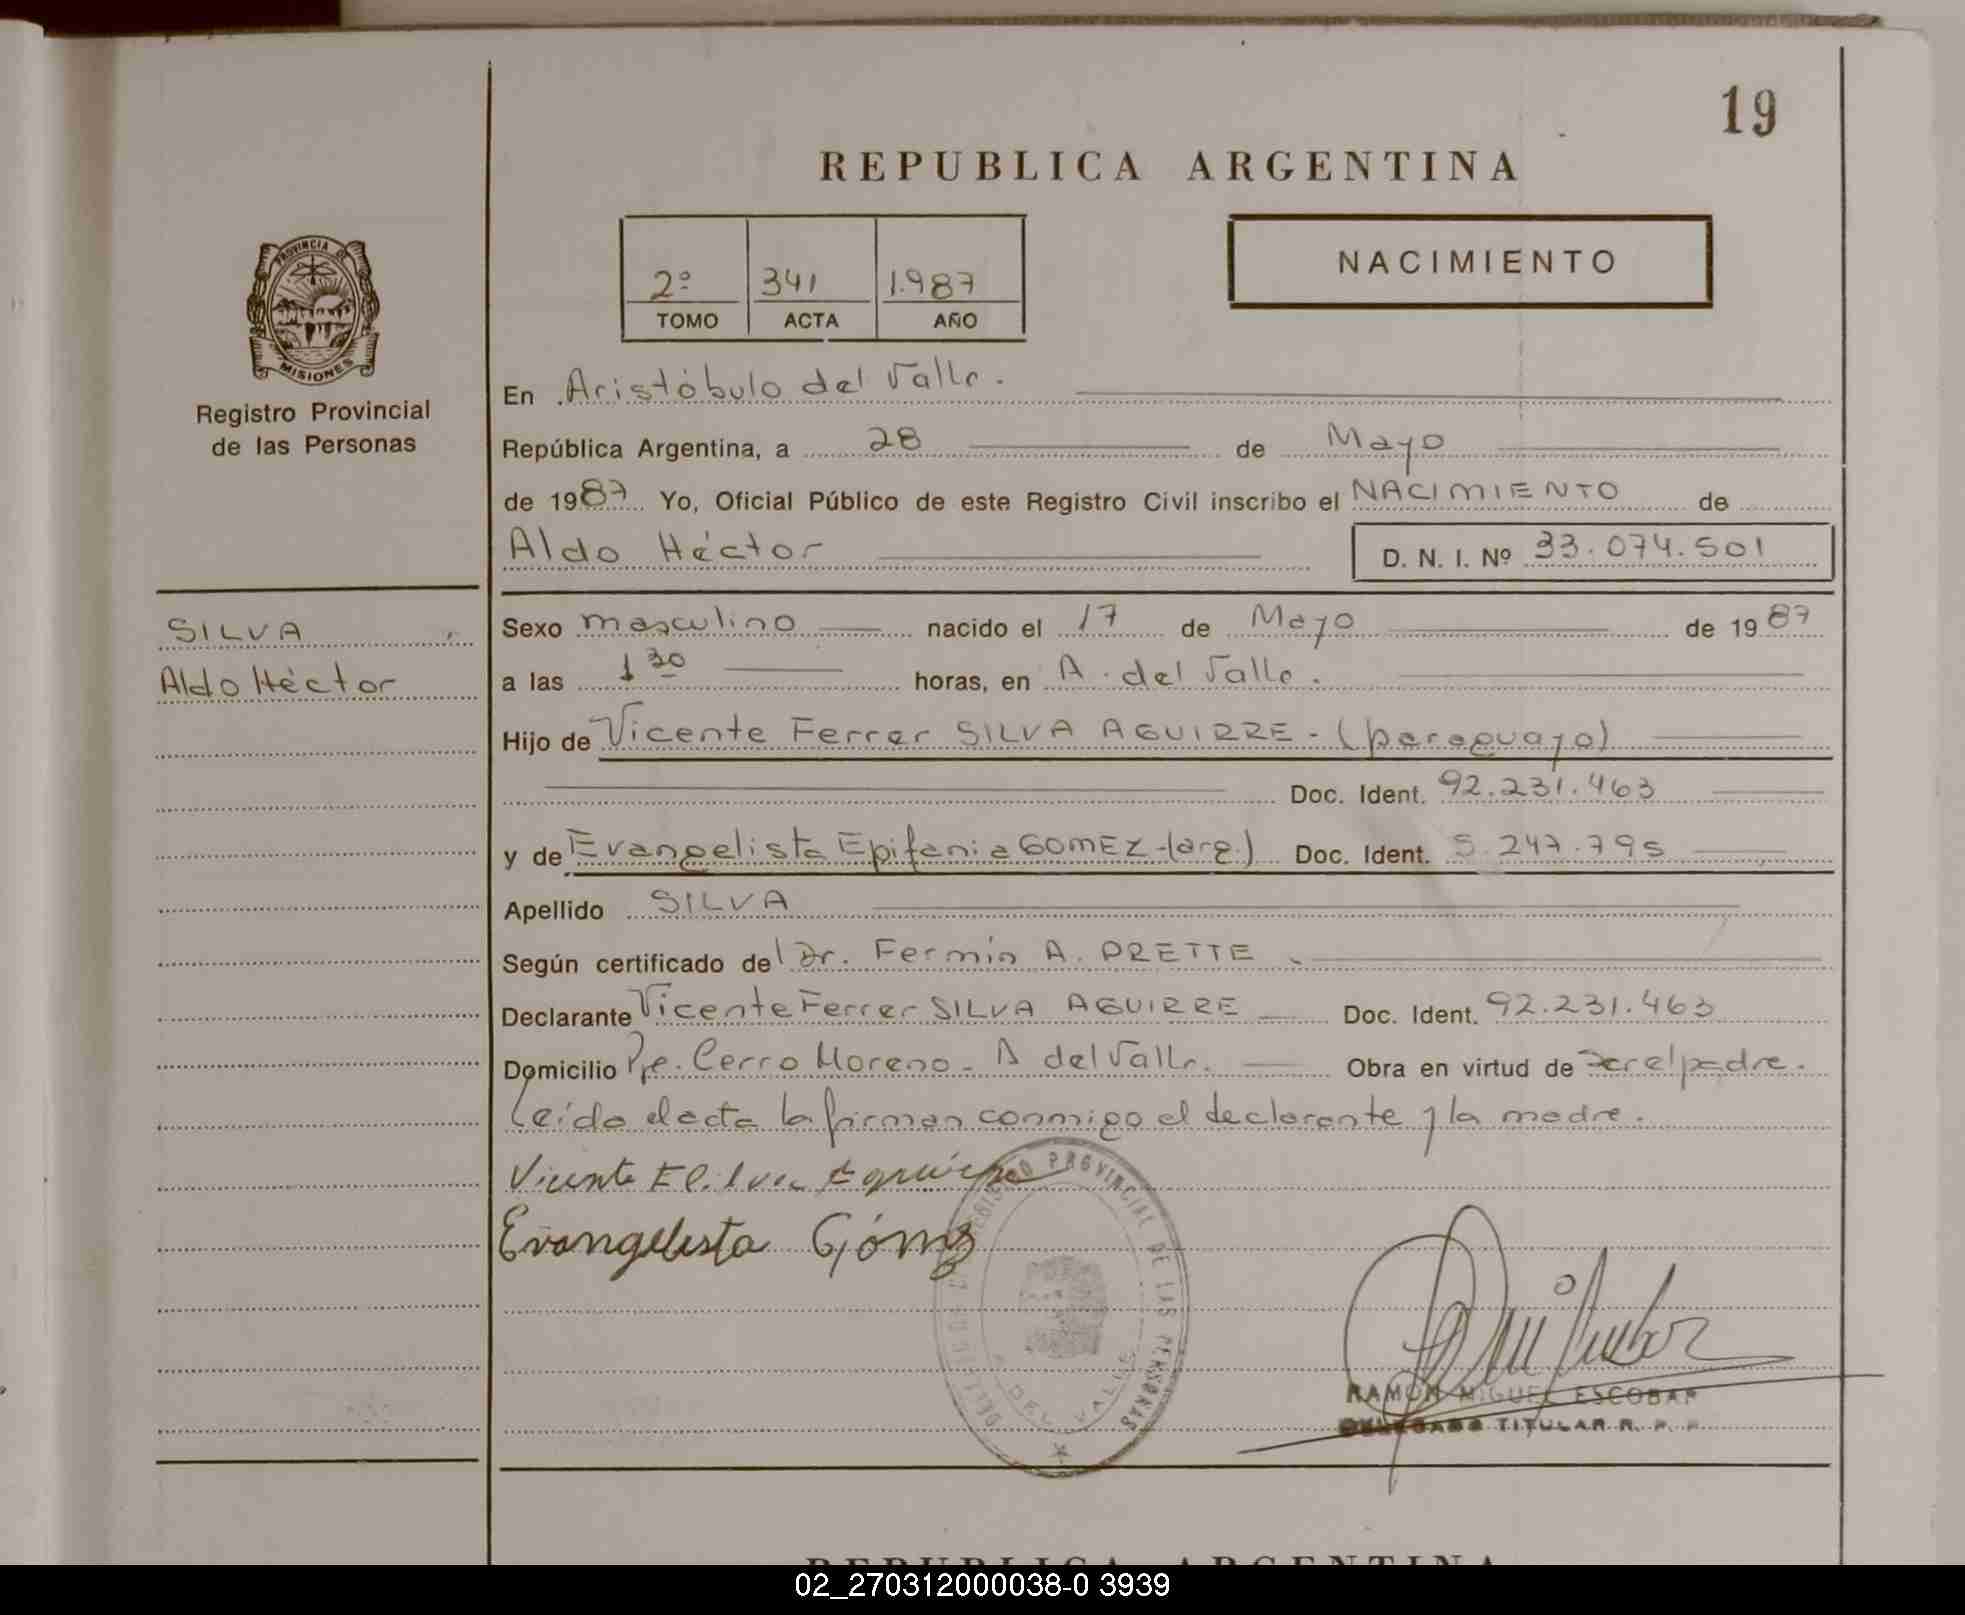 19
REPUBLICA ARGENTINA
PROVINCIA DE
MISIONES
Registro Provincial
de las Personas
2º 341 1.987
TOMO ACTA AÑO
NACIMIENTO
En Aristóbulo del Valle.
República Argentina, a 28 de Mayo
de 1987 Yo, Oficial Público de este Registro Civil inscribo el NACIMIENTO de
Aldo Héctor D. N. I. Nº 33.074.501
SILVA
Aldo Héctor
Sexo masculino nacido el 17 de Mayo de 1987
a las 1 30 horas, en A. del Valle.
Hijo de Vicente Ferrer SILVA AGUIRRE - (paraguayo)
Doc. Ident. 92.231.463
y de Evangelista Epifania GOMEZ - (arg.) Doc. Ident. 5.247.795
Apellido SILVA
Según certificado del Dr. Fermín A. PRETTE
Declarante Vicente Ferrer SILVA AGUIRRE Doc. Ident. 92.231.463
Domicilio Pje. Cerro Moreno - A del Valle. Obra en virtud de ser el padre.
Leída el acta la firman conmigo el declarante y la madre.
Vicente
Evangelista Gómez
REGISTRO PROVINCIAL DE LAS PERSONAS
DEL VALLE
RAMON MIGUEL ESCOBAR
DELEGADO TITULAR R. P. P.
REPUBLICA ARGENTINA
02_270312000038-0 3939